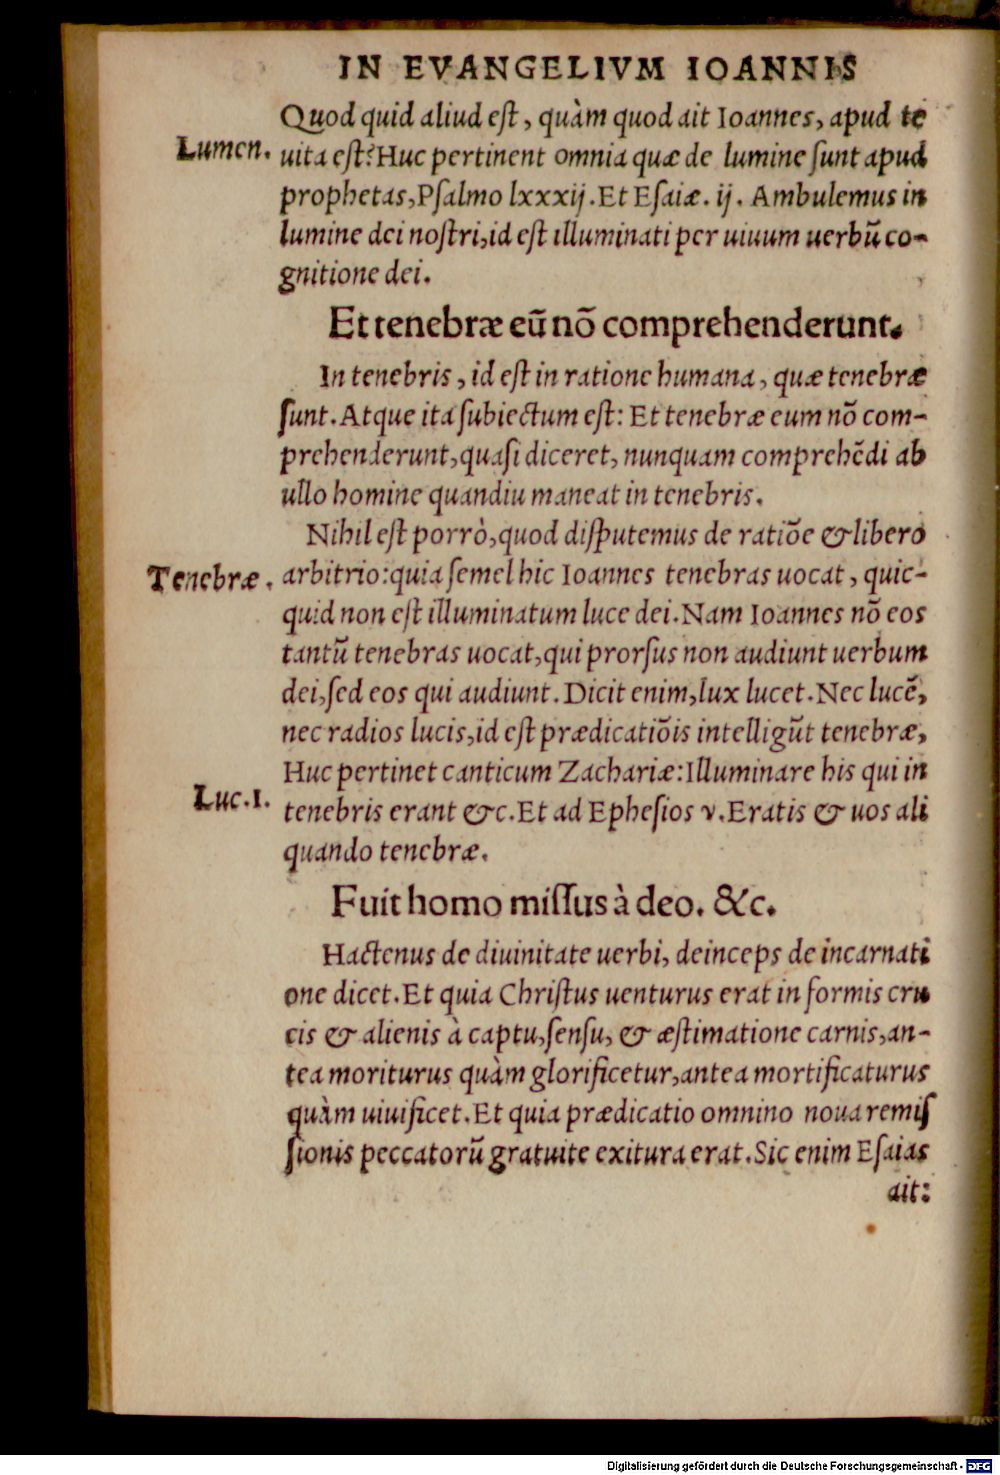 IN EVANGELIVM IOANNIS
Quod quid aliud est, quàm quod ait Ioannes, apud te
Lumen.
uita est? Huc pertinent omnia quæ de lumine sunt apud
prophetas, Psalmo lxxxij. Et Esaiæ. ij. Ambulemus in
lumine dei nostri, id est illuminati per uiuum uerbũ co-
gnitione dei.
Et tenebræ eũ nõ comprehenderunt.
In tenebris, id est in ratione humana, quæ tenebræ
sunt. Atque ita subiectum est: Et tenebræ eum nõ com-
prehenderunt, quasi diceret, nunquam comprehẽdi ab
ullo homine quandiu maneat in tenebris.
Nihil est porrò, quod disputemus de ratiõe & libero
Tenebræ.
arbitrio: quia semel hic Ioannes tenebras uocat, quic-
quid non est illuminatum luce dei. Nam Ioannes nõ eos
tantũ tenebras uocat, qui prorsus non audiunt uerbum
dei, sed eos qui audiunt. Dicit enim, lux lucet. Nec lucẽ,
nec radios lucis, id est prædicatiõis intelligũt tenebræ,
Huc pertinet canticum Zachariæ: Illuminare his qui in
Luc. 1.
tenebris erant &c. Et ad Ephesios v. Eratis & uos ali
quando tenebræ.
Fuit homo missus à deo. &c.
Hactenus de diuinitate uerbi, deinceps de incarnati
one dicet. Et quia Christus uenturus erat in formis cru
cis & alienis à captu, sensu, & æstimatione carnis, an-
tea moriturus quàm glorificetur, antea mortificaturus
quàm uiuificet. Et quia prædicatio omnino noua remis
sionis peccatorũ gratuite exitura erat. Sic enim Esaias
ait:
Digitalisierung gefördert durch die Deutsche Forschungsgemeinschaft - DFG